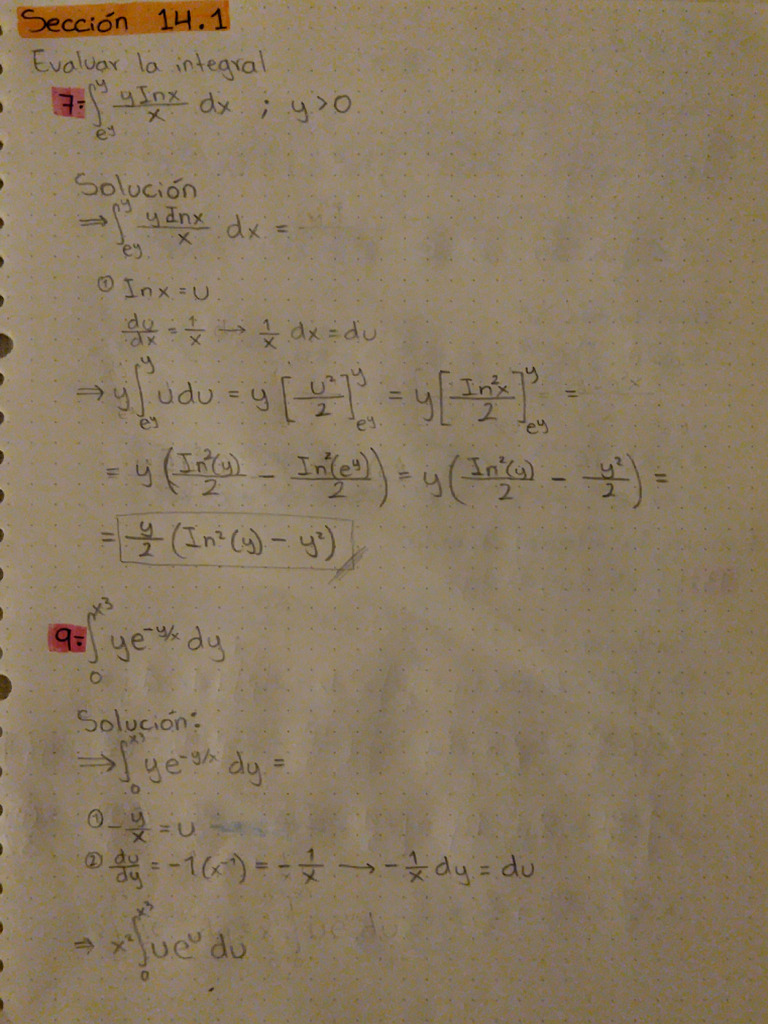 Sección 14.1
Evaluar la integral
7= ∫_{e^y}^{y} (y Inx / x) dx ; y>0
Solución
⇒ ∫_{e^y}^{y} (y Inx / x) dx =
① Inx = u
du/dx = 1/x → 1/x dx = du
⇒ y ∫_{e^y}^{y} u du = y [u²/2]_{e^y}^{y} = y [In²x/2]_{e^y}^{y} =
= y (In²(y)/2 - In²(e^y)/2) = y (In²(y)/2 - y²/2) =
= y/2 (In²(y) - y²)
9= ∫_{0}^{x³} ye^{-y/x} dy
Solución:
⇒ ∫_{0}^{x³} ye^{-y/x} dy =
① -y/x = u
② du/dy = -1(x⁻¹) = -1/x → -1/x dy = du
⇒ x² ∫_{0}^{x³} ue^u du